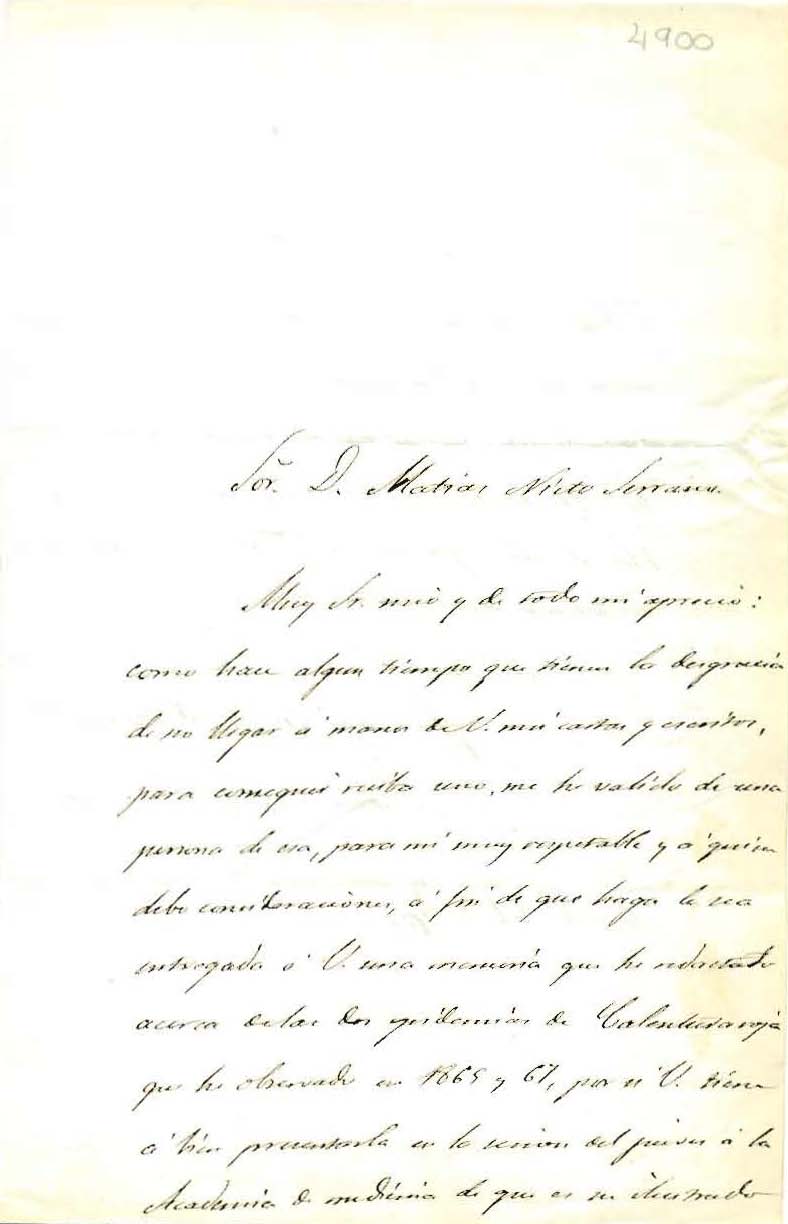 4900
Sor. D. Matias Nieto Serrano.
Muy Sr. mio y de todo mi aprecio:
como hace algun tiempo que tienen la desgracia
de no llegar á manos de V. mis cartas y escritos,
para conseguir reciba uno, me he valido de una
persona de esa, para mi muy respetable y á quien
debo consideraciones, á fin de que haga le sea
entregada á V. una memoria que he redactado
acerca de las dos epidemias de Calentura roja
que he observado en 1865 y 67, por si V. tiene
á bien presentarla en la sesion del jueves á la
Academia de medicina de que es su ilustrado